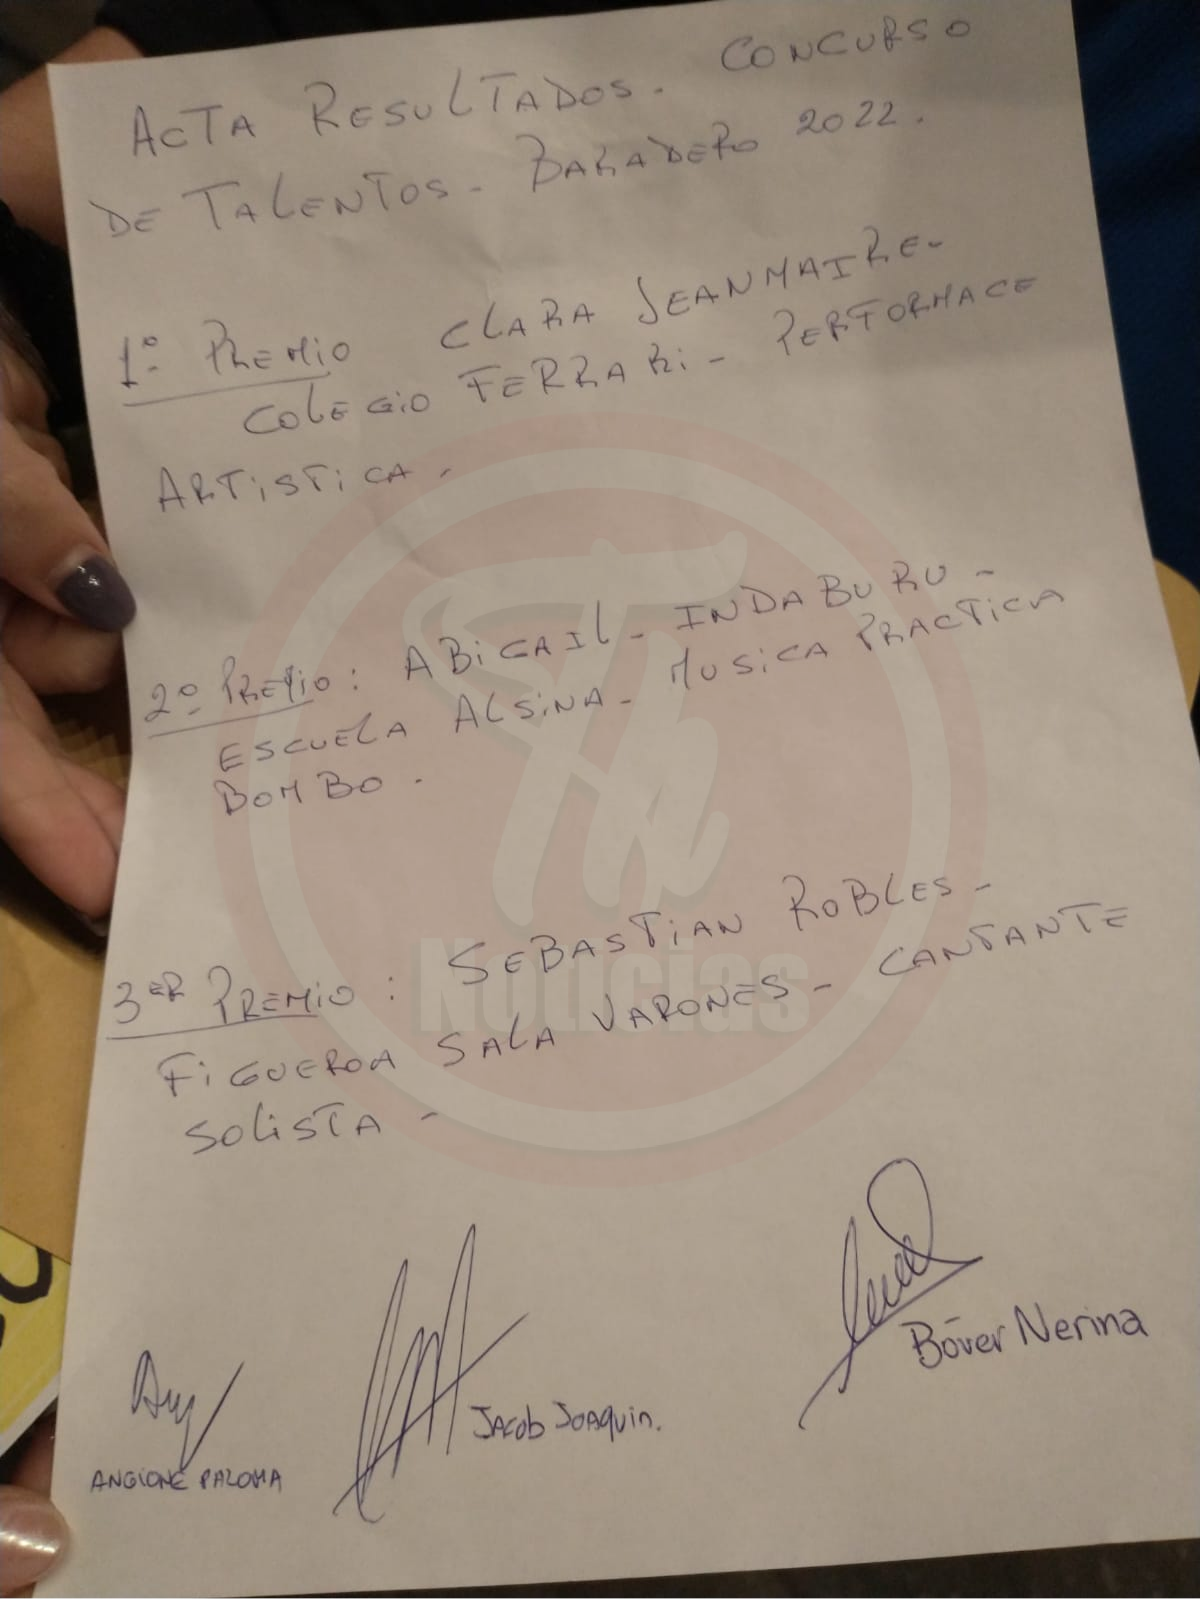 ACTA RESULTADOS. CONCURSO
DE TALENTOS - BARADERO 2022.
1º PREMIO CLARA JEANMAIRE-
COLEGIO FERRARI - PERFORMACE
ARTISTICA.
2º PREMIO: ABIGAIL - INDABURU -
ESCUELA ALSINA - MUSICA PRACTICA
BOMBO.
3ER PREMIO: SEBASTIAN ROBLES -
FIGUEROA SALA VARONES - CANTANTE
SOLISTA -
Noticias
Bóver Nerina
Jacob Joaquin.
ANGIONE PALOMA